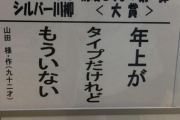 シルバー川柳
＜大賞＞
年上が
タイプだけれど
もういない
山田 様・作(九十二才)